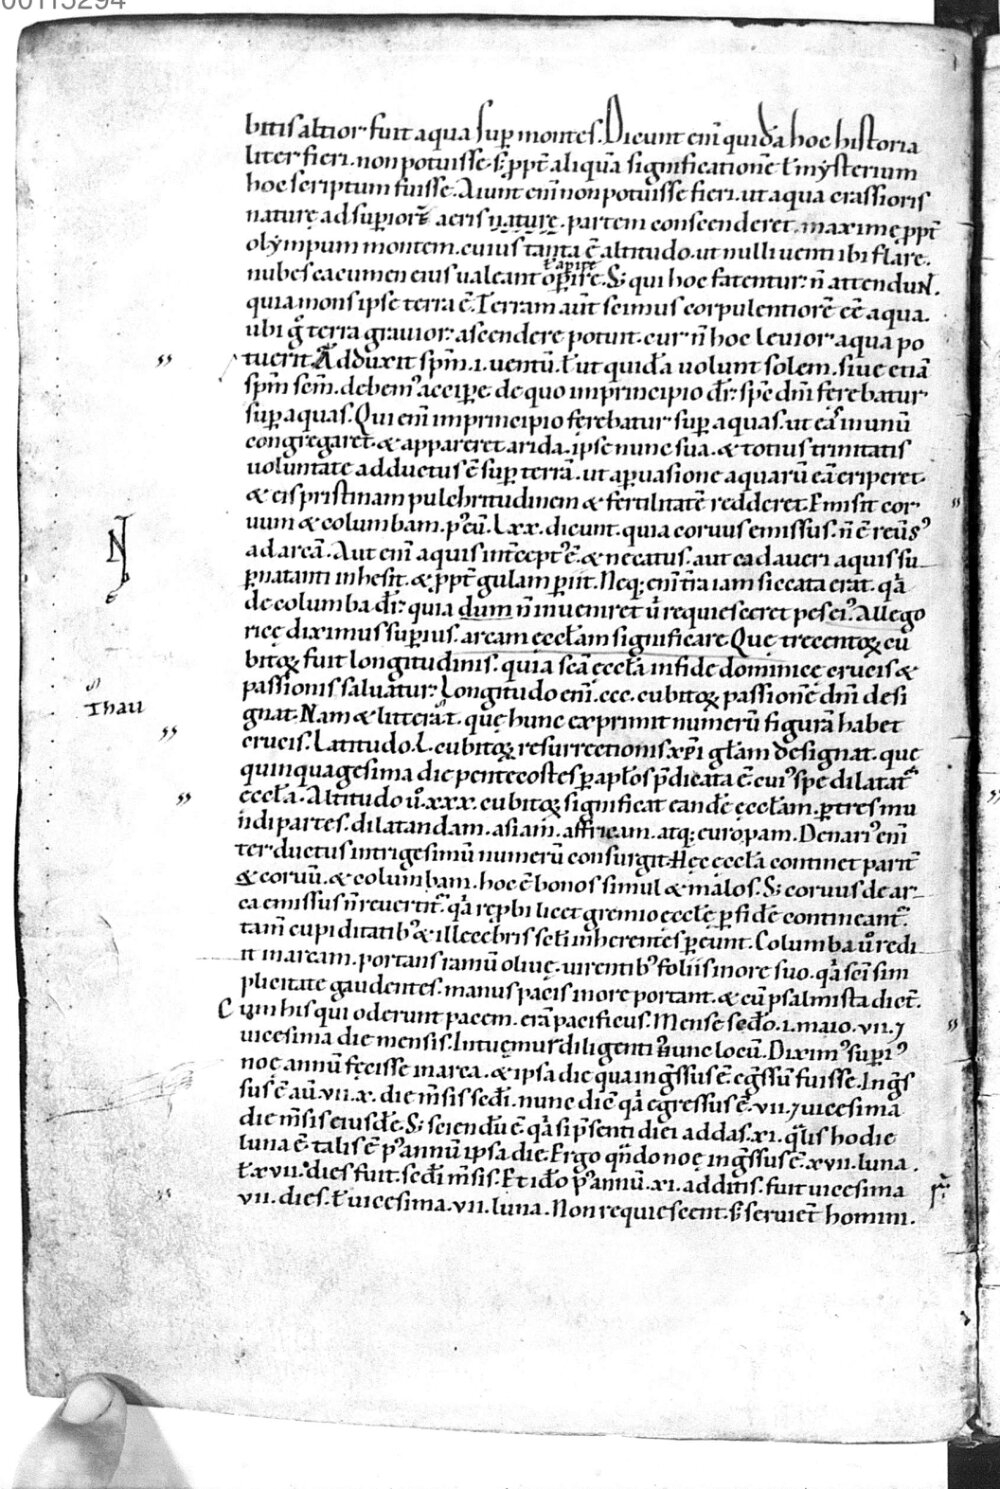 00115294
bitis altior fuit aqua sup̱ montes. Dicunt eni̅ quida̅ hoc historia
liter fieri. non potuisse. s; ꝓpt̅ aliqua̅ significatione̅ ł mẏsterium
hoc scriptum fuisse. Aiunt eni̅ non potuisse fieri. ut aqua crassioris
naturę ad sup̱iore̅ aeris naturę. partem conscenderet. maximę ꝓpt̅
olẏmpum montem. cuius tanta ē altitudo. ut nulli uenti ibi flare.
ł apire
nubes cacumen eius ualeant op̱ire. S; qui hoc fatentur: n̅ attendunt.
quia mons ipse terra ē. Terram aut̅ scimus corpulentiore̅ ēē aqua.
ubi g̊ terra grauior: ascendere potuit. cur n̅ hoc leuior aqua po
„ tuerit. Adduxit sp̅m .i. uentu̅. ł ut quida̅ uolunt solem. siue etia̅
sp̅m sc̅m. debemꝰ accip̱e. de quo imprincipio dr̅: sp̅c dn̅i ferebatur
sup̱ aquas. Qui eni̅ imprincipio ferebatur sup̱ aquas. ut eas in unu̅
congregaret. & appareret arida. ipse nunc sua. & totius trinitatis
uoluntate adductus ē sup̱ terra̅. ut ap̱uasione aquaru̅ ea̅ eriperet.
& eis pristinam pulchritudinem & fertilitate̅ redderet. Emisit cor „
uum & columbam. p̱ eu̅. Lxx. dicunt. quia coruus emissus. n̅ ē reu̅sꝰ
ad arca̅. Aut eni̅ aquis int̅ceptꝰ ē. & necatus. aut cadaueri aquis su
p̱natanti inhesit. & ꝓpt̅ gulam p̱iit. Neq; eni̅ tr̅a iam siccata erat. qa̅
de columba dr̅: quia dum n̅ inueniret u̅ requiesceret pes eiꝰ. Allego
ricę diximus sup̱ius. arcam ęccłam significare. Quę trecentoꝝ cu
bitoꝝ fuit longitudinis. quia sc̅a ęccła in fide dominicę crucis &
passionis saluatur: Longitudo eni̅ .ccc. cubitoꝝ passione̅ dn̅i desi
Thau
gnat. Nam & littera .t. quę hunc exprimit numeru̅ figura̅ habet
„ crucis. Latitudo .L. cubitoꝝ resurrectionis xp̅i gła̅m designat. quę
quinquagesima die pentecostes p̱ apłos p̅dicata ē. cuiꝰ spe dilatat̅
„ ęccła. Altitudo ů .xxx. cubitoꝝ significat eande̅ ęccłam. p̱ tres mu
ndi partes. dilatandam. asiam. affricam. atq; europam. Denariꝰ eni̅
ter ductus in trigesimu̅ numeru̅ consurgit. Hęc ęccła continet parit̅
& coruu̅. & columbam. hoc ē bonos simul & malos. S; coruus de ar
ca emissus n̅ reuertit̅. qa̅ reꝓbi licet gremio ęccłę p̱ fide̅ contineant̅.
tam̅ cupiditatibꝰ & illecebris scłi inherentes p̱eunt. Columba ů redi
it in arcam. portans ramu̅ oliuę. uirentibꝰ foliis in ore suo. qa̅ sc̅i sim
plicitate gaudentes. manus pacis in ore portant. & cu̅ psalmista dic̅t.
Cum his qui oderunt pacem. era̅ pacificus. Mense sc̅do .i. maio. vii. ⁊ „
uicesima die mensis. Intuęmur diligenti hunc locu̅. Diximꝰ sup̱iꝰ
noę annu̅ fecisse in arca. & ipsa die qua ing̅ssus ē. eg̅ssu̅ fuisse. Ing̅s
sus ē au̅. vii. x. die m̅sis sc̅di. nunc die̅ qa̅ egressus ē. vii. ⁊ uicesima
die m̅sis eiusde̅. S; sciendu̅ ē qa̅ si p̅senti diei addas .xi. q̅lis hodie
luna ē. talis ē pꝰ annu̅ ipsa die. Ergo qn̅do noę ing̅ssus ē. xvii. luna.
ł xvii. dies fuit. sc̅di m̅sis. Et ido̅ pꝰ annu̅ .xi. additis. fuit uicesima
„ vii. dies. ł uicesima. vii. luna. Non requiescent. s; seruiet̅ homini.